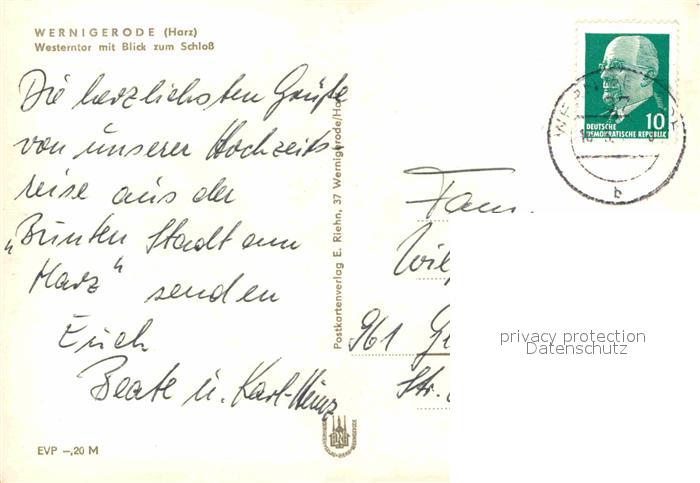 WERNIGERODE (Harz)
Westerntor mit Blick zum Schloß
Die herzlichsten Grüße
von unserer Hochzeits-
reise aus der
„Bunten Stadt am
Harz" senden
Euch
Beate u. Karl-Heinz
EVP -,20 M
Postkartenverlag E. Riehn, 37 Wernigerode/Harz
10
DEUTSCHE
DEMOKRATISCHE REPUBLIK
b
Fam.
961
Str.
privacy protection
Datenschutz